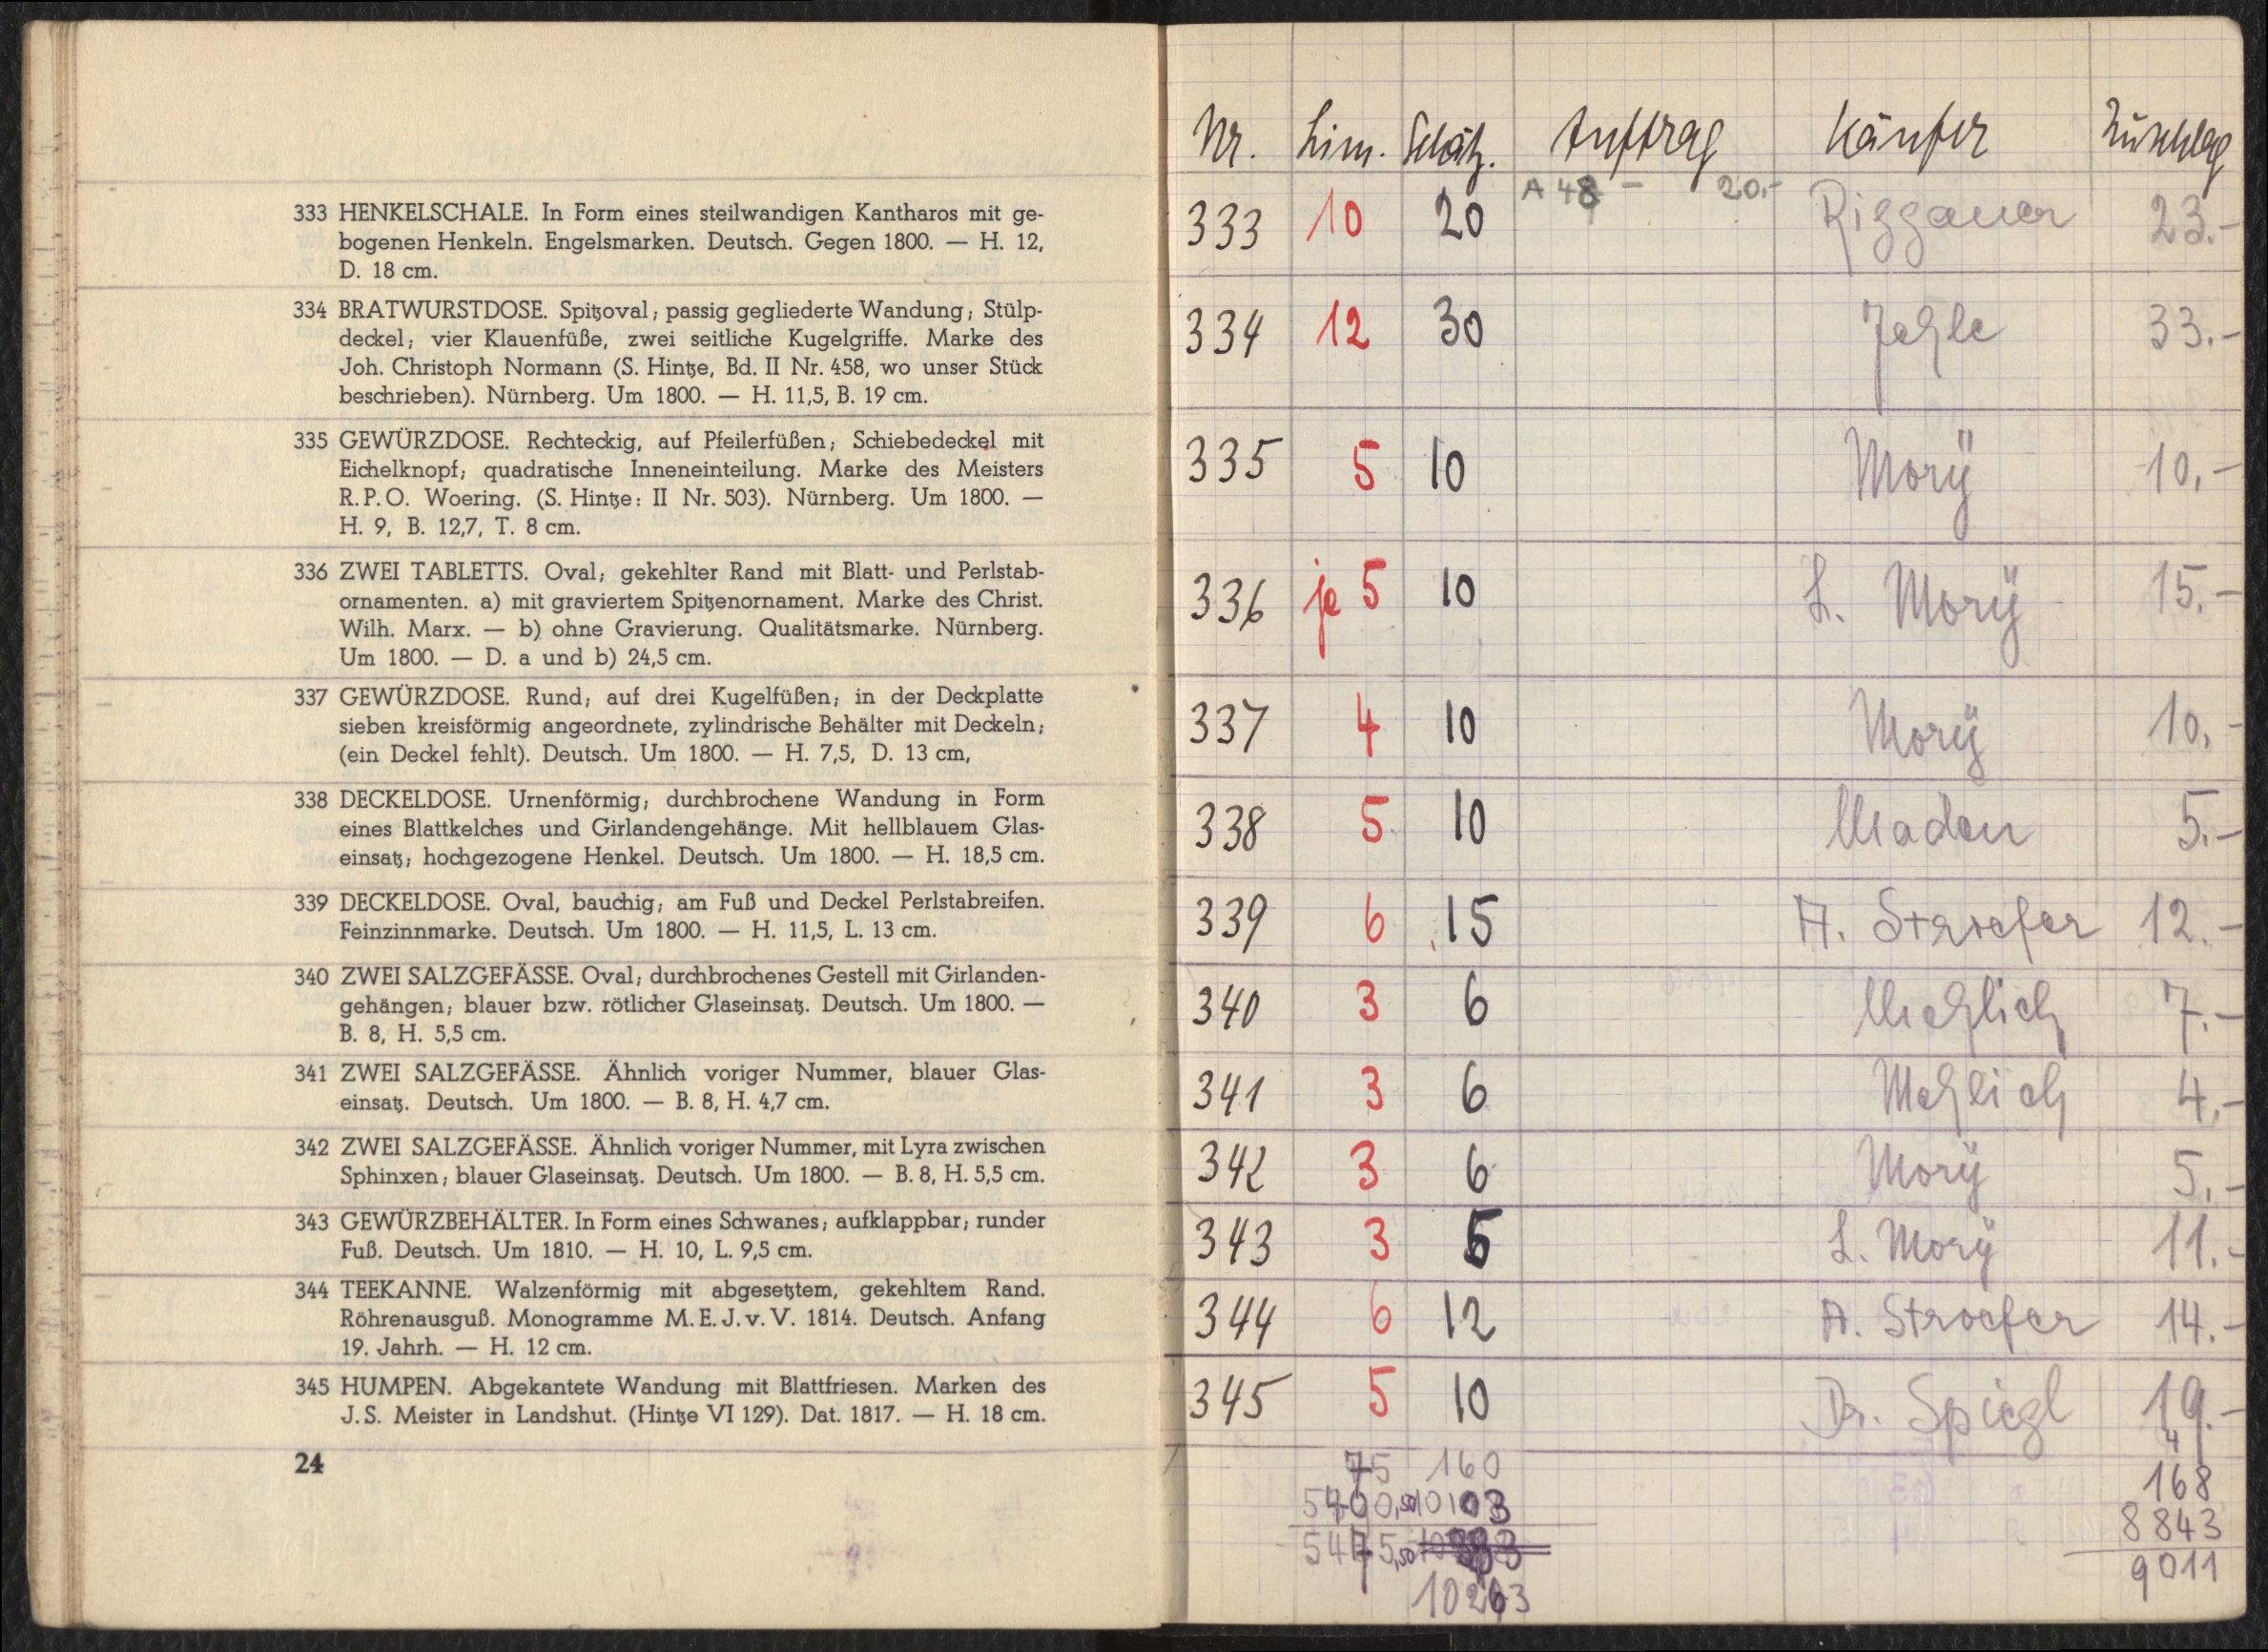 333 HENKELSCHALE. In Form eines steilwandigen Kantharos mit ge-
bogenen Henkeln. Engelsmarken. Deutsch. Gegen 1800. — H. 12,
D. 18 cm.
334 BRATWURSTDOSE. Spitzoval; passig gegliederte Wandung; Stülp-
deckel; vier Klauenfüße, zwei seitliche Kugelgriffe. Marke des
Joh. Christoph Normann (S. Hintze, Bd. II Nr. 458, wo unser Stück
beschrieben). Nürnberg. Um 1800. — H. 11,5, B. 19 cm.
335 GEWÜRZDOSE. Rechteckig, auf Pfeilerfüßen; Schiebedeckel mit
Eichelknopf; quadratische Inneneinteilung. Marke des Meisters
R. P. O. Woering. (S. Hintze: II Nr. 503). Nürnberg. Um 1800. —
H. 9, B. 12,7, T. 8 cm.
336 ZWEI TABLETTS. Oval; gekehlter Rand mit Blatt- und Perlstab-
ornamenten. a) mit graviertem Spitzenornament. Marke des Christ.
Wilh. Marx. — b) ohne Gravierung. Qualitätsmarke. Nürnberg.
Um 1800. — D. a und b) 24,5 cm.
337 GEWÜRZDOSE. Rund; auf drei Kugelfüßen; in der Deckplatte
sieben kreisförmig angeordnete, zylindrische Behälter mit Deckeln;
(ein Deckel fehlt). Deutsch. Um 1800. — H. 7,5, D. 13 cm,
338 DECKELDOSE. Urnenförmig; durchbrochene Wandung in Form
eines Blattkelches und Girlandengehänge. Mit hellblauem Glas-
einsatz; hochgezogene Henkel. Deutsch. Um 1800. — H. 18,5 cm.
339 DECKELDOSE. Oval, bauchig; am Fuß und Deckel Perlstabreifen.
Feinzinnmarke. Deutsch. Um 1800. — H. 11,5, L. 13 cm.
340 ZWEI SALZGEFÄSSE. Oval; durchbrochenes Gestell mit Girlanden-
gehängen; blauer bzw. rötlicher Glaseinsatz. Deutsch. Um 1800. —
B. 8, H. 5,5 cm.
341 ZWEI SALZGEFÄSSE. Ähnlich voriger Nummer, blauer Glas-
einsatz. Deutsch. Um 1800. — B. 8, H. 4,7 cm.
342 ZWEI SALZGEFÄSSE. Ähnlich voriger Nummer, mit Lyra zwischen
Sphinxen; blauer Glaseinsatz. Deutsch. Um 1800. — B. 8, H. 5,5 cm.
343 GEWÜRZBEHÄLTER. In Form eines Schwanes; aufklappbar; runder
Fuß. Deutsch. Um 1810. — H. 10, L. 9,5 cm.
344 TEEKANNE. Walzenförmig mit abgesetztem, gekehltem Rand.
Röhrenausguß. Monogramme M. E. J. v. V. 1814. Deutsch. Anfang
19. Jahrh. — H. 12 cm.
345 HUMPEN. Abgekantete Wandung mit Blattfriesen. Marken des
J. S. Meister in Landshut. (Hintze VI 129). Dat. 1817. — H. 18 cm.
24
Nr. Lim. Schätz. Auftrag Käufer Zuschlag
333 10 20 A 48 – 20.- Riggauer 23.-
334 12 30 Jehle 33.-
335 5 10 Morÿ 10,-
336 je 5 10 L. Morÿ 15.-
337 4 10 Morÿ 10,-
338 5 10 Maden 5.-
339 6 15 A. Stroefer 12.-
340 3 6 Mehlich 7.-
341 3 6 Mehlich 4.-
342 3 6 Morÿ 5.-
343 3 5 L. Morÿ 11.-
344 6 12 A. Stroefer 14.-
345 5 10 Dr. Spiegl 19.-
75 160 168
5400,50 10103 8843
5475,50 9011
10263